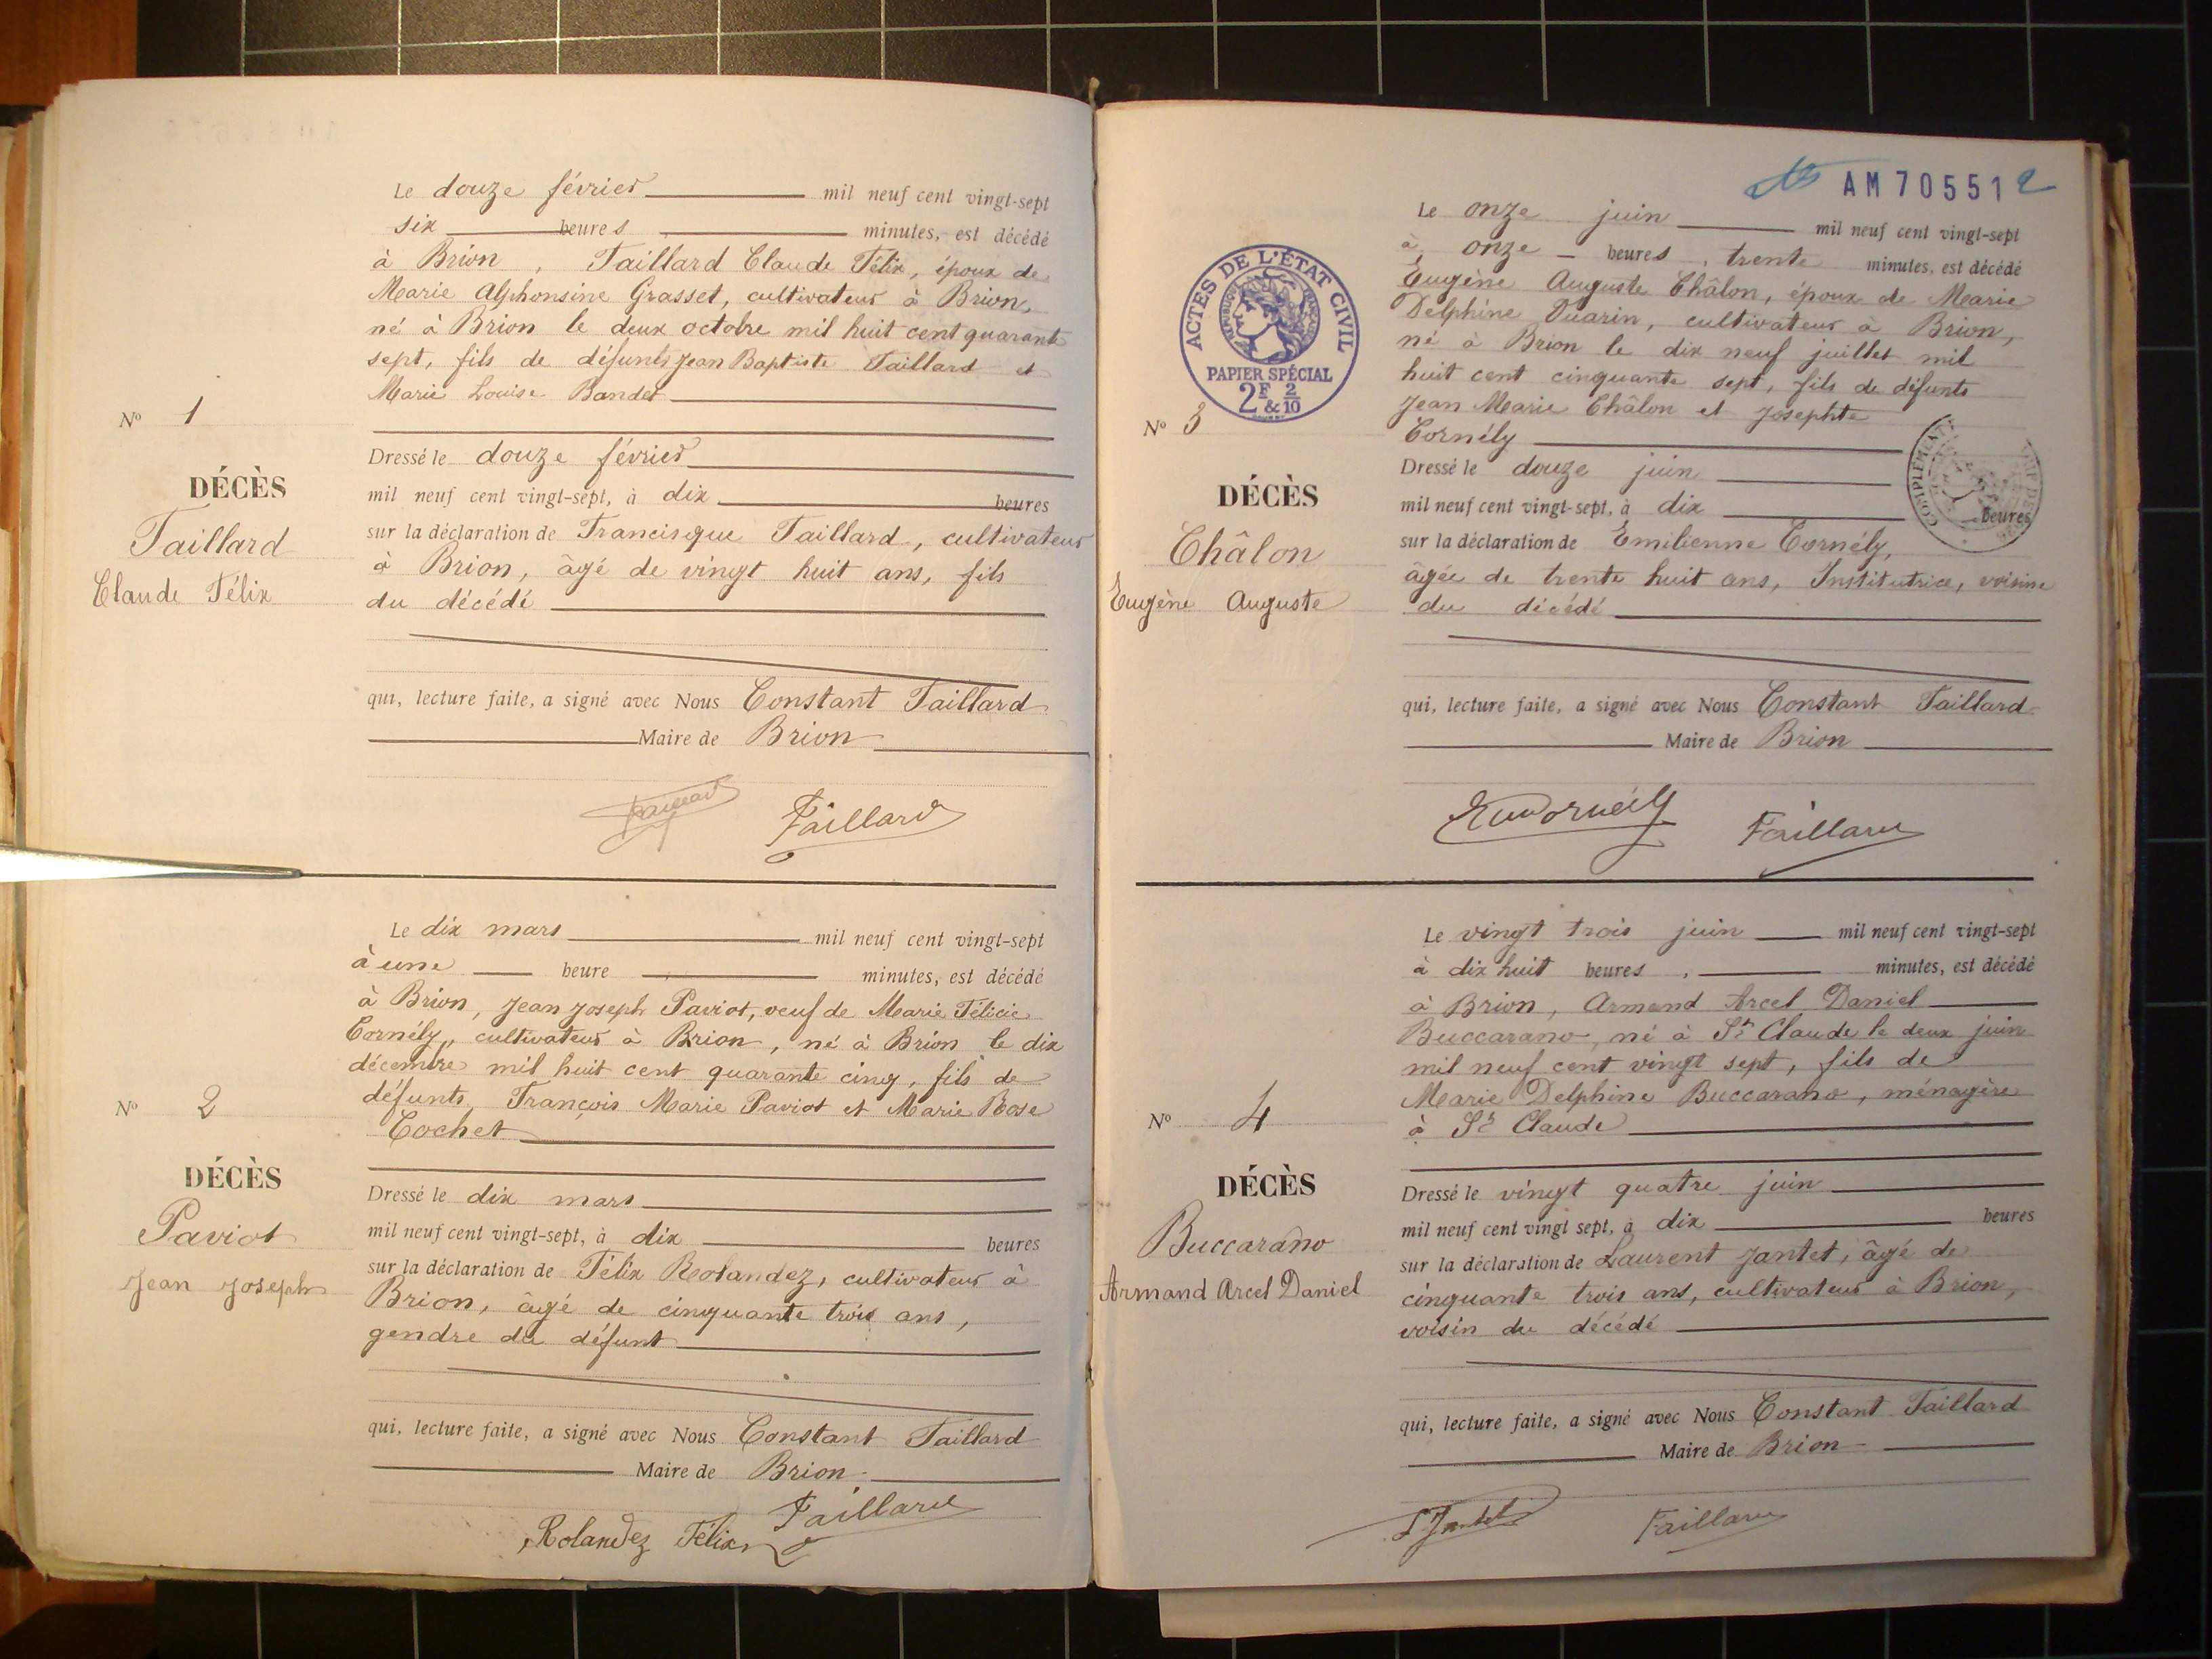 Le douze février mil neuf cent vingt-sept
six heures, minutes, est décédé
à Brion, Taillard Claude Félix, époux de
Marie Alphonsine Grasset, cultivateur à Brion,
né à Brion le deux octobre mil huit cent quarante
sept, fils de défunts Jean Baptiste Taillard et
Marie Louise Bandet
N° 1
Dressé le douze février
DÉCÈS
mil neuf cent vingt-sept, à dix heures
Taillard
sur la déclaration de Francisque Taillard, cultivateur
Claude Félix
à Brion, âgé de vingt huit ans, fils
du décédé
qui, lecture faite, a signé avec Nous Constant Taillard
Maire de Brion
Taillard
Taillard
Le dix mars mil neuf cent vingt-sept
à une heure, minutes, est décédé
à Brion, Jean Joseph Paviot, veuf de Marie Félicie
Cornély, cultivateur à Brion, né à Brion le dix
décembre mil huit cent quarante cinq, fils de
défunts François Marie Paviot et Marie Rose
N° 2
Cochet
DÉCÈS
Dressé le dix mars
Paviot
mil neuf cent vingt-sept, à dix heures
Jean Joseph
sur la déclaration de Félix Rolandez, cultivateur à
Brion, âgé de cinquante trois ans,
gendre du défunt
qui, lecture faite, a signé avec Nous Constant Taillard
Maire de Brion
Taillard
Rolandez Félix
AM 70551 2
ACTES DE L'ÉTAT CIVIL
RÉPUBLIQUE FRANÇAISE
PAPIER SPÉCIAL
2F & 2/10
Le onze juin mil neuf cent vingt-sept
à onze heures, trente minutes, est décédé
Eugène Auguste Châlon, époux de Marie
Delphine Ouarin, cultivateur à Brion,
né à Brion le dix neuf juillet mil
huit cent cinquante sept, fils de défunts
Jean Marie Châlon et Josephte
N° 3
Cornély
COMPLÉMENT
Dressé le douze juin
DÉCÈS
mil neuf cent vingt-sept, à dix heures
Châlon
sur la déclaration de Emilienne Cornély,
Eugène Auguste
âgée de trente huit ans, Institutrice, voisine
du décédé
qui, lecture faite, a signé avec Nous Constant Taillard
Maire de Brion
Em Cornély
Taillard
Le vingt trois juin mil neuf cent vingt-sept
à dix huit heures, minutes, est décédé
à Brion, Armand Arcel Daniel
Buccarano, né à St Claude le deux juin
mil neuf cent vingt sept, fils de
Marie Delphine Buccarano, ménagère
N° 4
à St Claude
DÉCÈS
Dressé le vingt quatre juin
mil neuf cent vingt sept, à dix heures
Buccarano
sur la déclaration de Laurent Jantet, âgé de
Armand Arcel Daniel
cinquante trois ans, cultivateur à Brion,
voisin du décédé
qui, lecture faite, a signé avec Nous Constant Taillard
Maire de Brion
L Jantet
Taillard